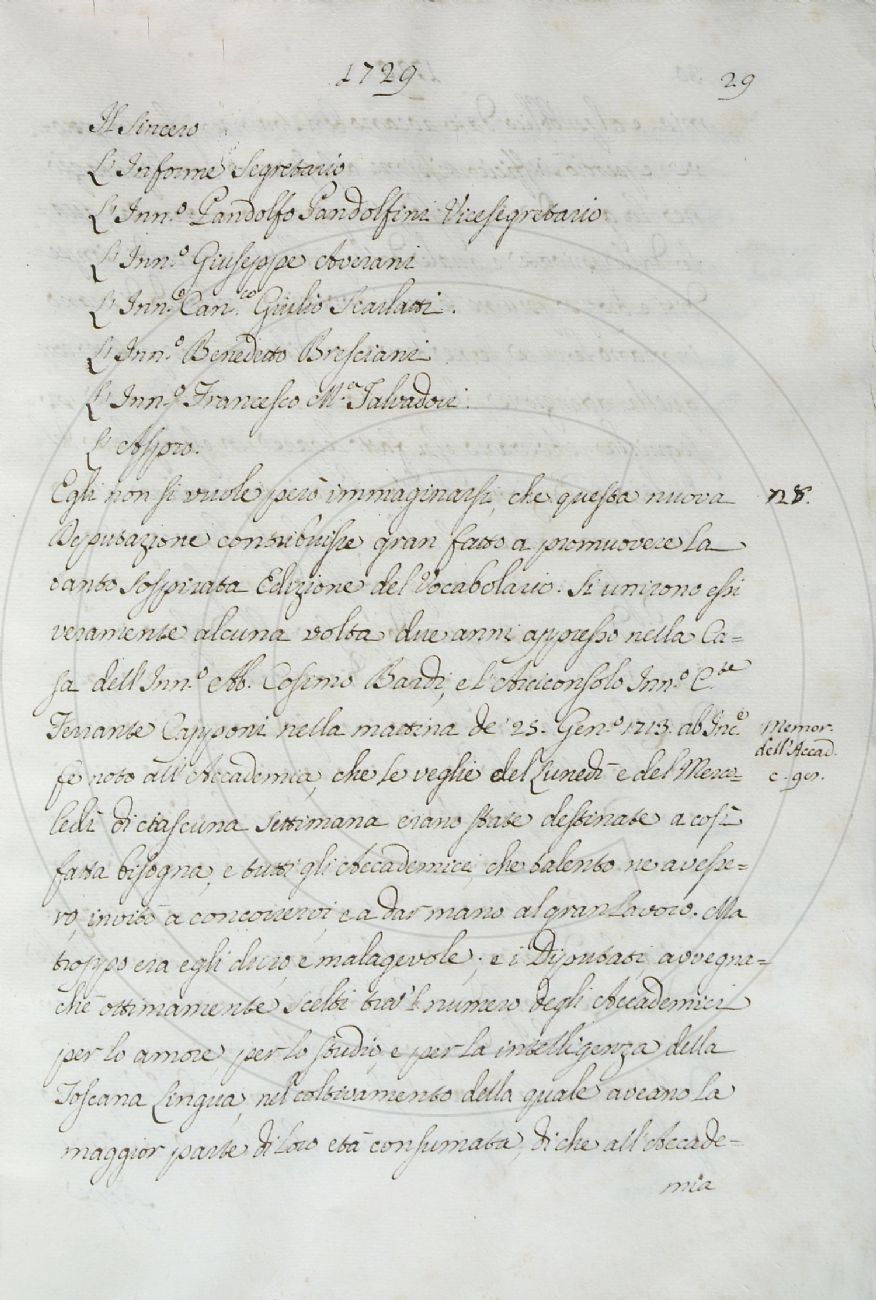 1729
29
Il Sincero
L'Informe Segretario
L'Inn.º Pandolfo Pandolfini Vicesegretario
L'Inn.º Giuseppe Averani
L'Inn.º Can.co Giulio Scarlatti.
L'Inn.º Benedetto Bresciani
L'Inn.º Francesco M.a Salvadori.
L'Aspro.
Egli non si vuole però immaginarsi, che questa nuova
Diputazione contribuisse gran fatto a promuovere la
tanto sospirata Edizione del Vocabolario. Si unirono essi
veramente alcuna volta due anni appresso nella Ca=
sa dell'Inn.º Ab. Cosimo Bardi, e l'Arciconsolo Inn.º C.te
Ferrante Capponi nella mattina de' 25. Genº 1713. ab Inc.e
fè noto all'Accademia, che le veglie del Lunedì e del Merco=
ledì di ciascuna settimana erano state destinate a così
fatta bisogna, e tutti gli Accademici, che talento ne avesse=
ro, invitò a concorrervi, e a dar mano al gran lavoro. Ma
troppo era egli duro, e malagevole; e i Diputati, avvegna=
chè ottimamente scelti tra 'l numero degli Accademici
per lo amore, per lo studio, e per la intelligenza della
Toscana Lingua, nel coltivamento della quale aveano la
maggior parte di loro età consumata, di che all'Accade=
mia
728.
Memor.
dell'Accad.
c.